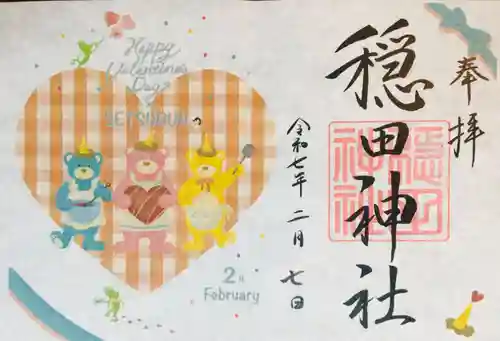 奉拝
穏田神社
穏田
神社
令和七年 二月 七日
Happy
Valentine's
Day?
SETSUBUN
2月
February